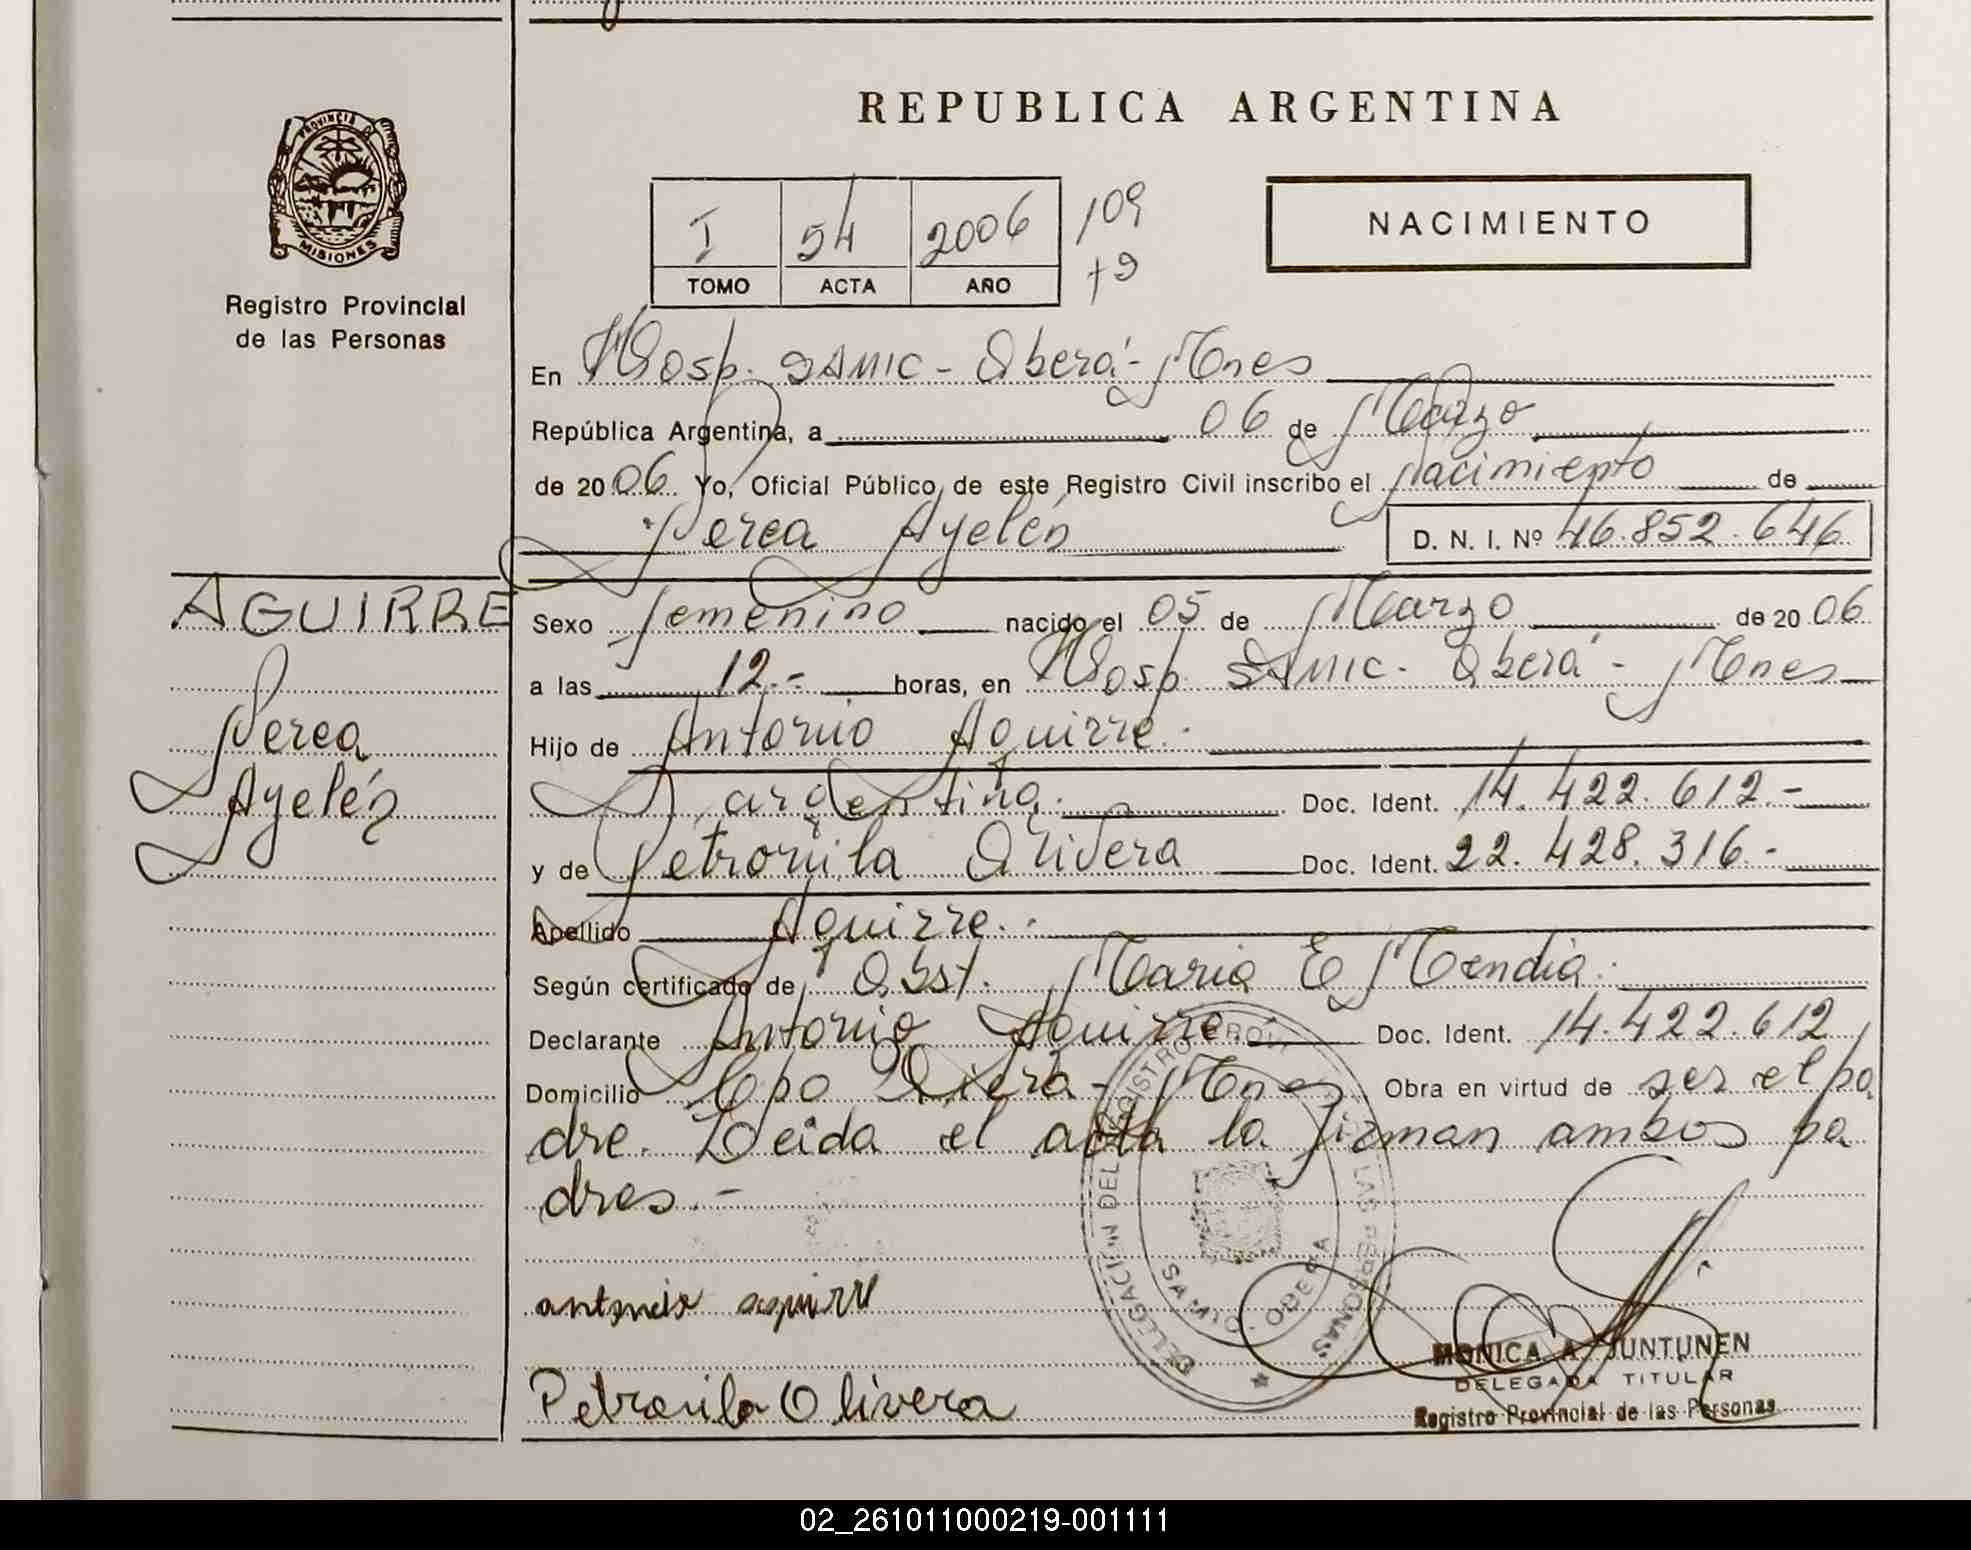 REPUBLICA ARGENTINA
PROVINCIA DE
MISIONES
Registro Provincial
de las Personas
I 54 2006 109
TOMO ACTA AÑO +9
NACIMIENTO
En Hosp. SAMIC - Oberá - Mnes
República Argentina, a 06 de Marzo
de 20 06 Yo, Oficial Público de este Registro Civil inscribo el Nacimiento de
Perea Ayelén D. N. I. Nº 46.852.646
AGUIRRE
Perea
Ayelén
Sexo femenino nacido el 05 de Marzo de 20 06
a las 12.- horas, en Hosp SAMIC - Oberá - Mnes
Hijo de Antonio Aguirre.-
argentina. Doc. Ident. 14.422.612.-
y de Petronila Olivera Doc. Ident. 22.428.316.-
Apellido Aguirre.-
Según certificado de Obst. Maria E Mendia.
Declarante Antonio Aguirre.- Doc. Ident. 14.422.612
Domicilio Cpo Viera - Mnes Obra en virtud de ser el pa
dre. Leida el acta la firman ambos pa
dres.-
antonio aguirre
Petronila Olivera
DELEGACION DEL REGISTRO LAS PERSONAS
OBERA
MONICA A. JUNTUNEN
DELEGADA TITULAR
Registro Provincial de las Personas
02_261011000219-001111